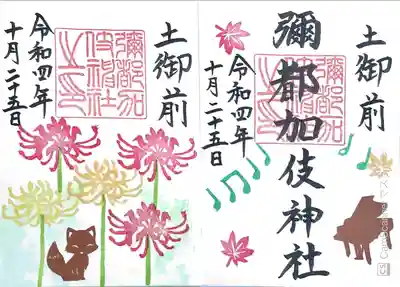 土御前
彌都加
伎神社
之印
令和四年
十月二十五日
土御前
彌都加伎神社
令和四年
十月二十五日
CS